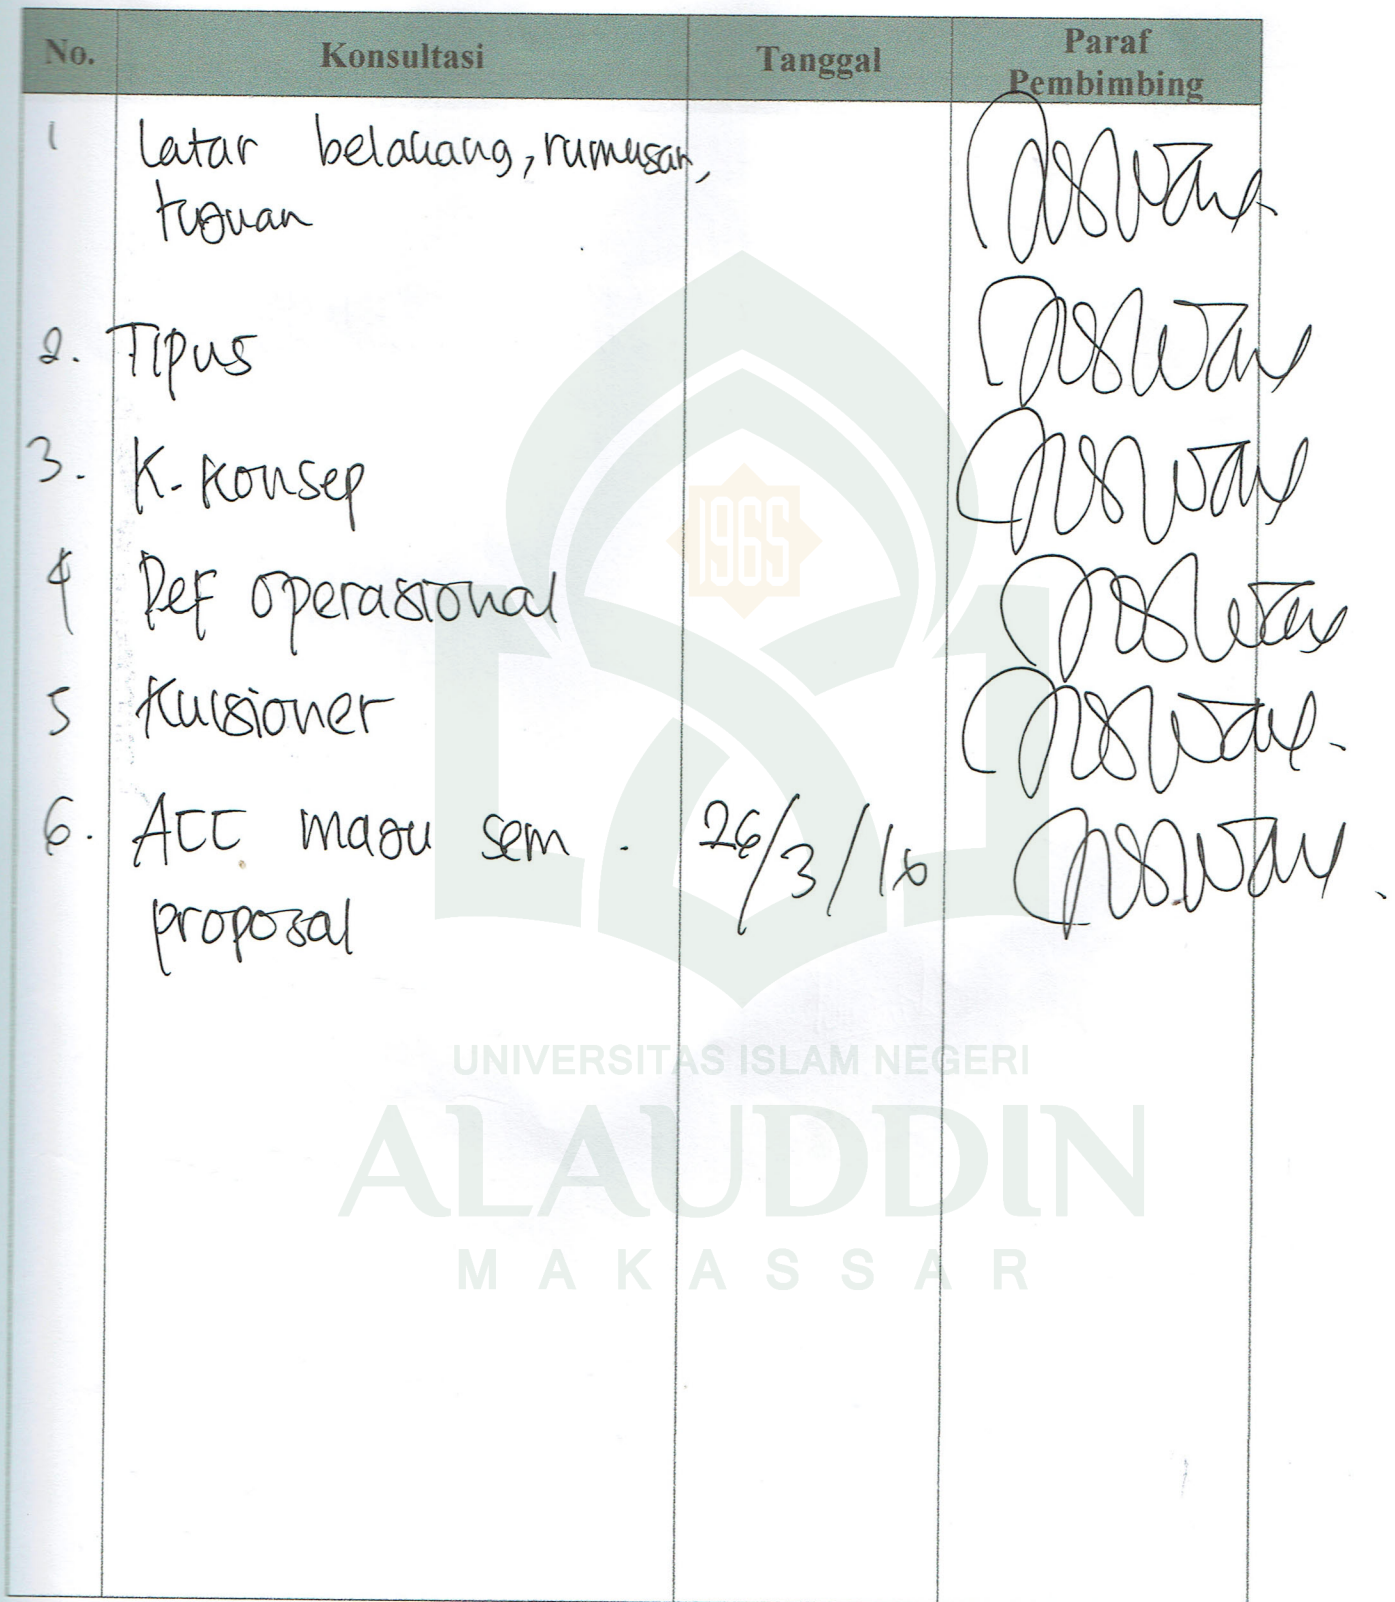 No. Konsultasi Tanggal Paraf
Pembimbing
1 Latar belakang, rumusan,
tujuan
2. Tipus
3. K. Konsep
4 Def operasional
5 Kuisioner
6. ACC maju sem. 26/3/18
proposal
1965
UNIVERSITAS ISLAM NEGERI
ALAUDDIN
MAKASSAR